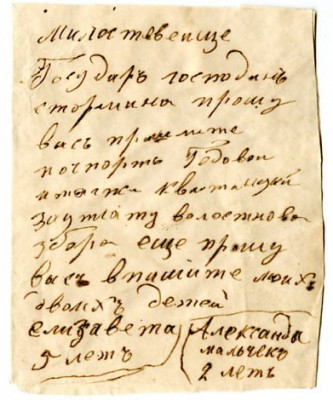 Милостевеище
Государъ господинъ
сторшина прошу
васъ пришлите
почпортъ Годовои
и также квитанцей
за уплату волостнова
збора еще прошу
васъ впишите моихъ
двоихъ детей
елизавета
5 летъ
Александа
мальчекъ
2 летъ